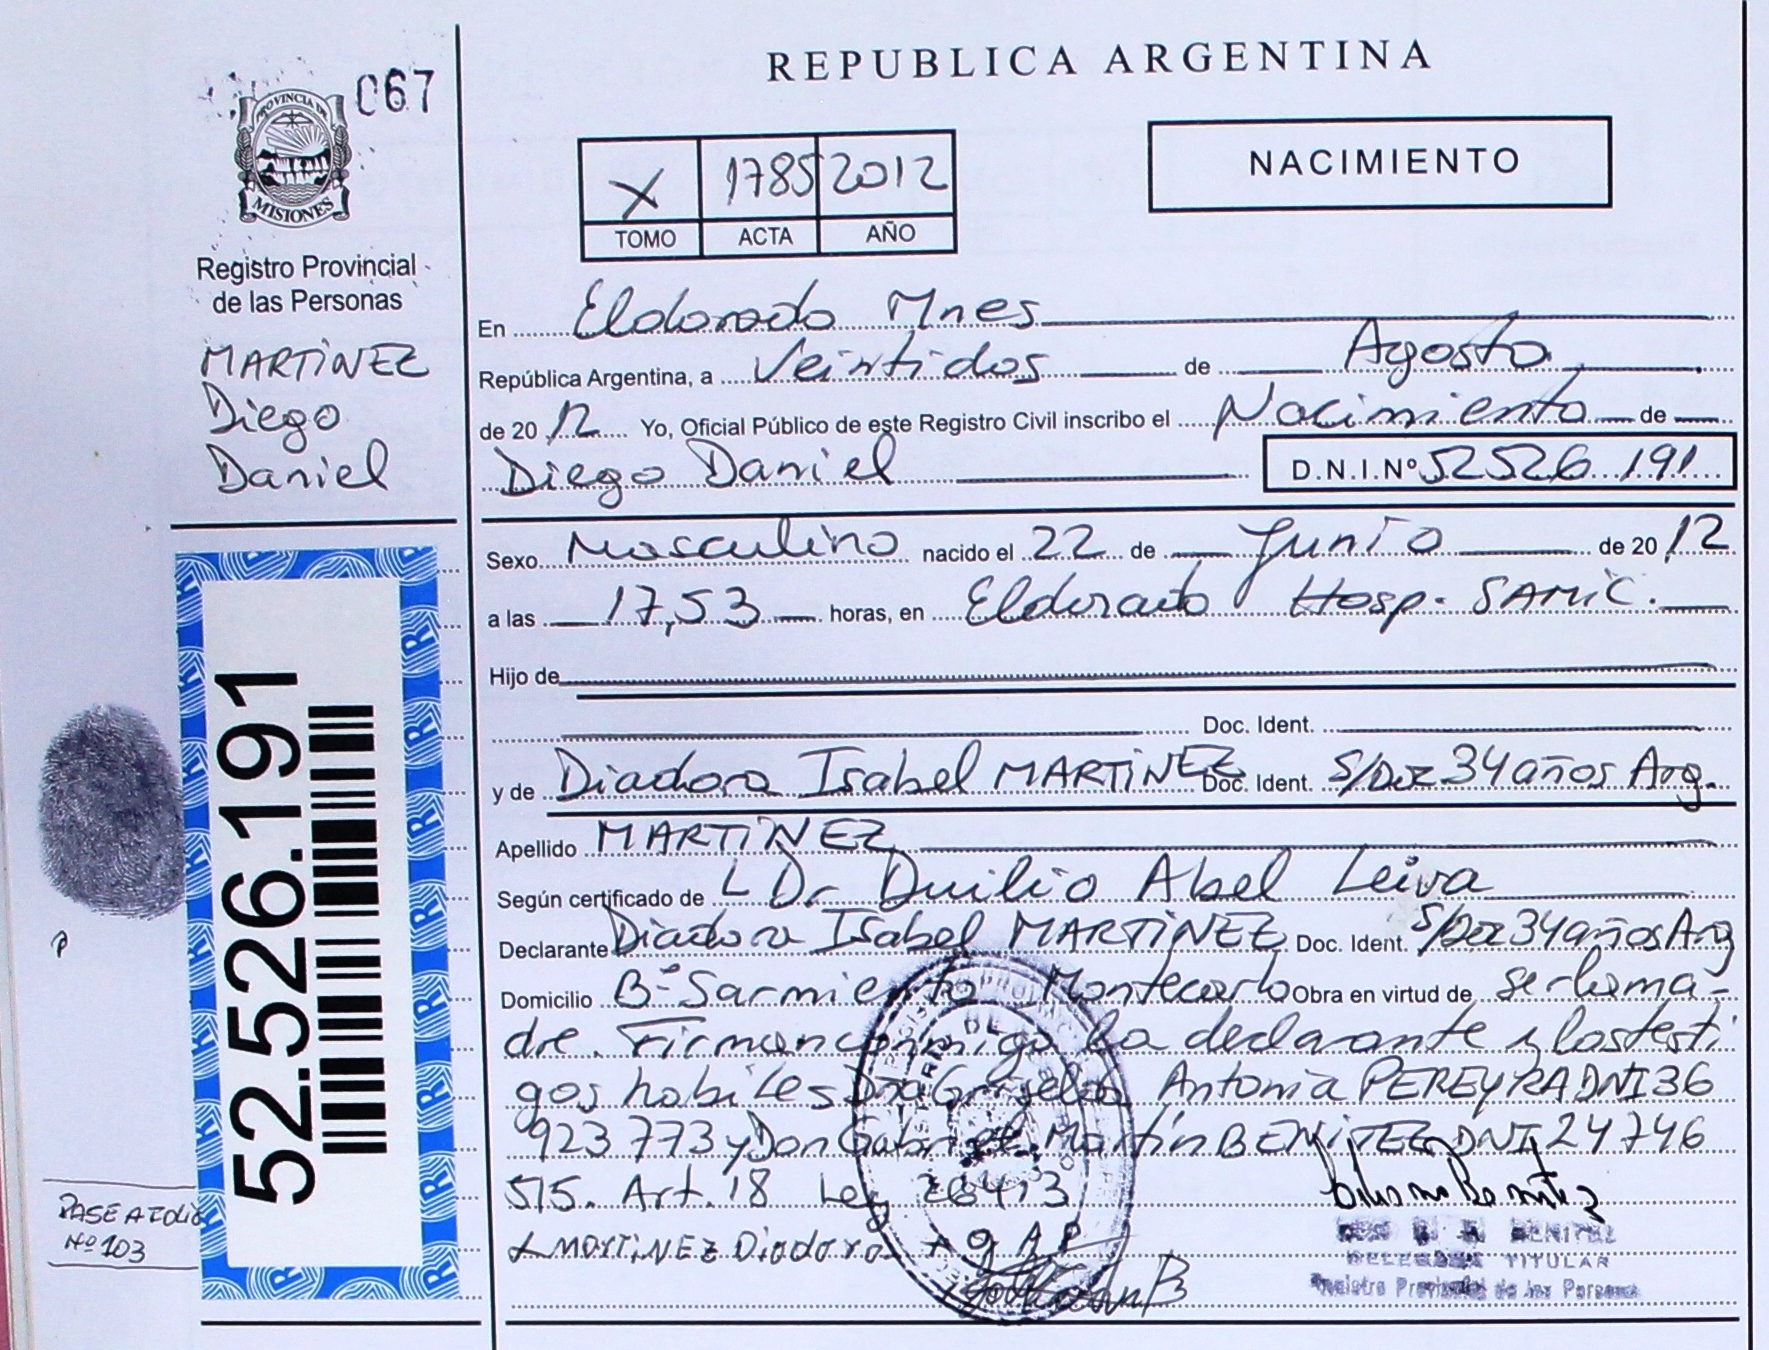 067
PROVINCIA DE
MISIONES
Registro Provincial
de las Personas
MARTÍNEZ
Diego
Daniel
REPUBLICA ARGENTINA
X 1785 2012
TOMO ACTA AÑO
NACIMIENTO
En Eldorado Mnes
República Argentina, a Veintidos de Agosto
de 20 12 Yo, Oficial Público de este Registro Civil inscribo el Nacimiento de
Diego Daniel D.N.I.Nº 52526191
Sexo Masculino nacido el 22 de Junio de 20 12
a las 17,53 horas, en Eldorado Hosp. SAMIC.
Hijo de
Doc. Ident.
y de Diadora Isabel MARTÍNEZ Doc. Ident. S/Doc 34 años Arg.
Apellido MARTÍNEZ
Según certificado de L Dr. Duilio Abel Leiva
Declarante Diadora Isabel MARTÍNEZ Doc. Ident. S/Doc 34 años Arg
Domicilio Bº Sarmiento Montecarlo Obra en virtud de ser la ma-
dre. Firman conmigo la declarante y los testi
gos habiles Dña Griselda Antonia PEREYRA DNI 36
923 773 y Don Gabriel Martín BENITEZ DNI 24746
515. Art. 18 Ley 26413
MARTINEZ Diadora
BENITEZ
DELEGADA TITULAR
Registro Provincial de las Personas
52.526.191
PASE A FOLIO
Nº 103